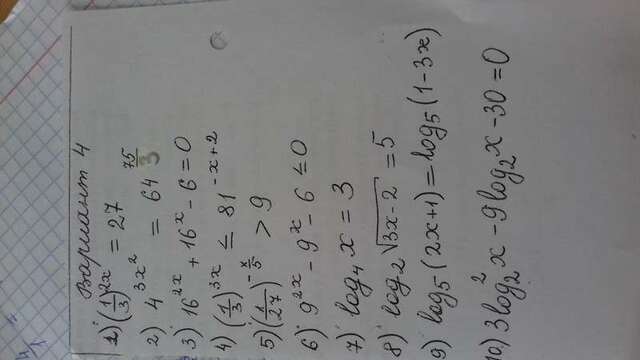 Вариант 4
1) (1/3)^2x = 27
2) 4^3x² = 64^75
3) 16^2x + 16^x - 6 = 0
4) (1/3)^3x ≤ 81^-x+2
5) (1/27)^-x/5 > 9
6) 9^2x - 9^x - 6 ≤ 0
7) log₄ x = 3
8) log₂ √3x-2 = 5
9) log₅ (2x+1) = log₅ (1-3x)
10) 3log₂² x - 9log₂ x - 30 = 0